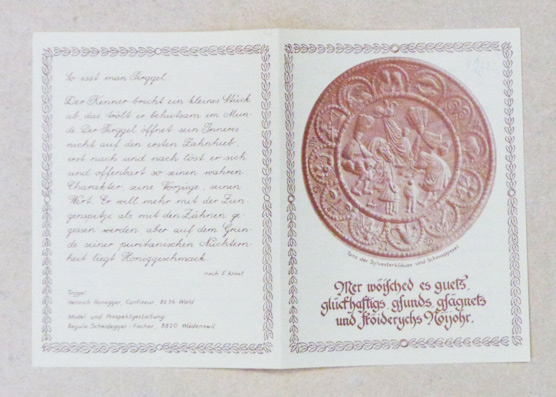 So isst man Tirggel:
Der Kenner bricht ein kleines Stück
ab, das rollt er behutsam im Mun-
de. Der Tirggel öffnet sein Inneres
nicht auf den ersten Zahnhieb,
erst nach und nach löst er sich
und offenbart so seinen wahren
Charakter, seine Vorzüge, seinen
Wert. Er will mehr mit der Zun-
genspitze als mit den Zähnen ge-
gessen werden, aber auf dem Grun-
de seiner puritanischen Nüchtern-
heit liegt Honiggeschmack.
nach E. 
Tirggel:
Heinrich Honegger, Confiseur 8636 Wald
Model- und Prospektgestaltung:
Regula Schneidegger-Fischer, 8820 Wädenswil
Tanz der Sylvesterkläuse und Schnappesel
Mer wöisched es guets,
glückhaftigs, gsunds, gsägnets
und fröiderychs Nöijohr.